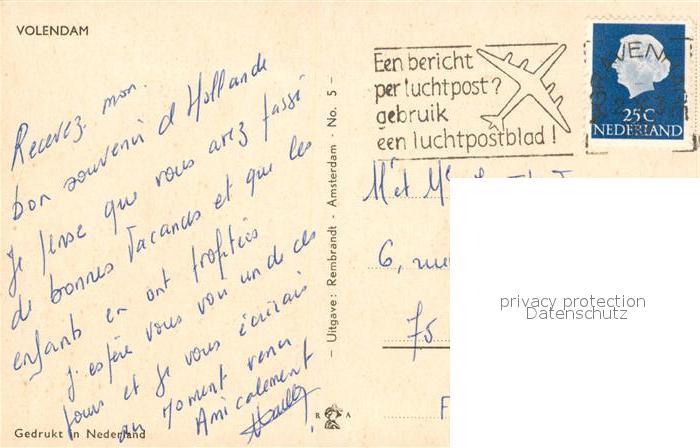 VOLENDAM
Recevez mon
bon souvenir d Hollande
Je pense que vous avez passé
de bonnes vacances et que les
enfants en ont profités
J espère vous voir un de ces
jours et je vous écrirais
au moment venu
Amicalement
Gedrukt in Nederland
– Uitgave: Rembrandt - Amsterdam - No. 5 –
R A
Een bericht
per luchtpost?
gebruik
een luchtpostblad!
25C
NEDERLAND
Mr et Me
6, rue
75
privacy protection
Datenschutz